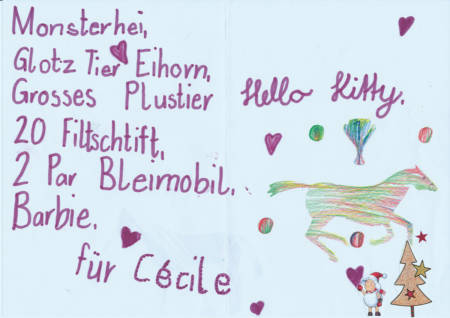 Monsterhei,
Glotz Tier Eihorn,
Grosses Plustier
20 Filtschtift,
2 Par Bleimobil.
Barbie.
für Cécile
Hello Kitty.